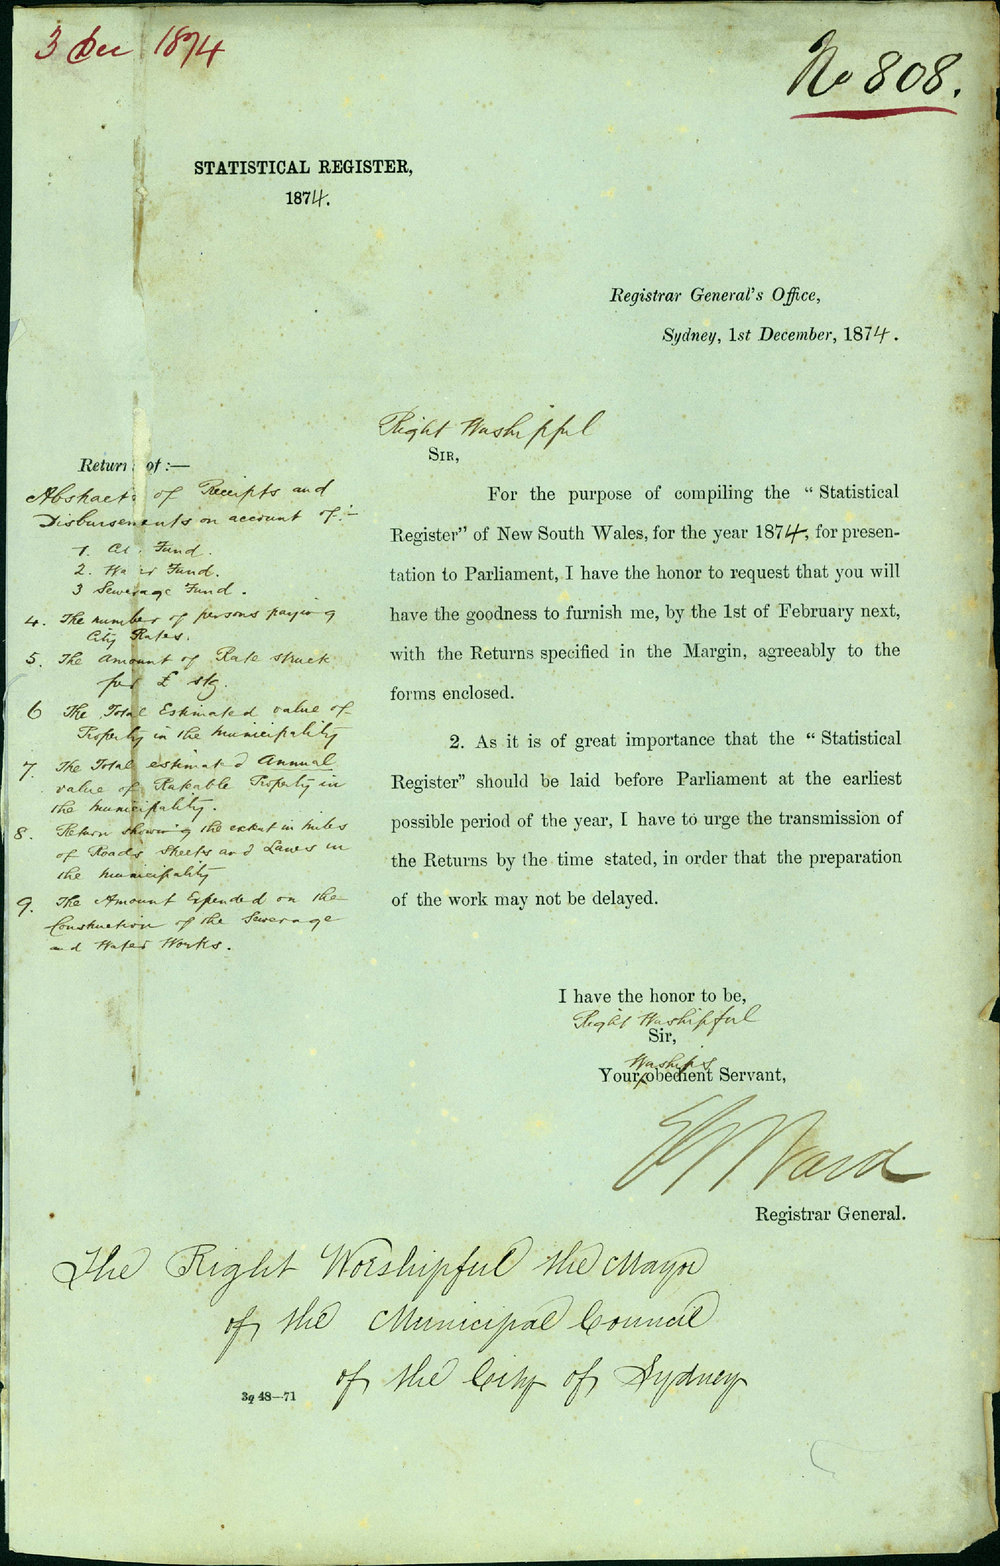 3 Dec 1874
No 808.
STATISTICAL REGISTER,
1874.
Registrar General's Office,
Sydney, 1st December, 1874.
Right Worshipful
SIR,
Return of :—
Abstracts of Receipts and
Disbursements on account of :-
1. Fund.
2. Water Fund.
3 Sewerage Fund.
4. The number of persons paying
City Rates.
5. The amount of Rate struck
per £ stg.
6 The Total Estimated value of
Property in the Municipality
7. The Total estimated Annual
value of Rateable Property in
the Municipality.
8. Return showing the extent in Miles
of Roads Streets and Lanes in
the Municipality
9. The Amount Expended on the
Construction of the Sewerage
and Water Works.
For the purpose of compiling the “Statistical
Register” of New South Wales, for the year 1874, for presen-
tation to Parliament, I have the honor to request that you will
have the goodness to furnish me, by the 1st of February next,
with the Returns specified in the Margin, agreeably to the
forms enclosed.
2. As it is of great importance that the “Statistical
Register” should be laid before Parliament at the earliest
possible period of the year, I have to urge the transmission of
the Returns by the time stated, in order that the preparation
of the work may not be delayed.
I have the honor to be,
Right Worshipful
Sir,
Worship's
Your obedient Servant,
Ward
Registrar General.
The Right Worshipful the Mayor
of the Municipal Council
of the City of Sydney
3q 48—71